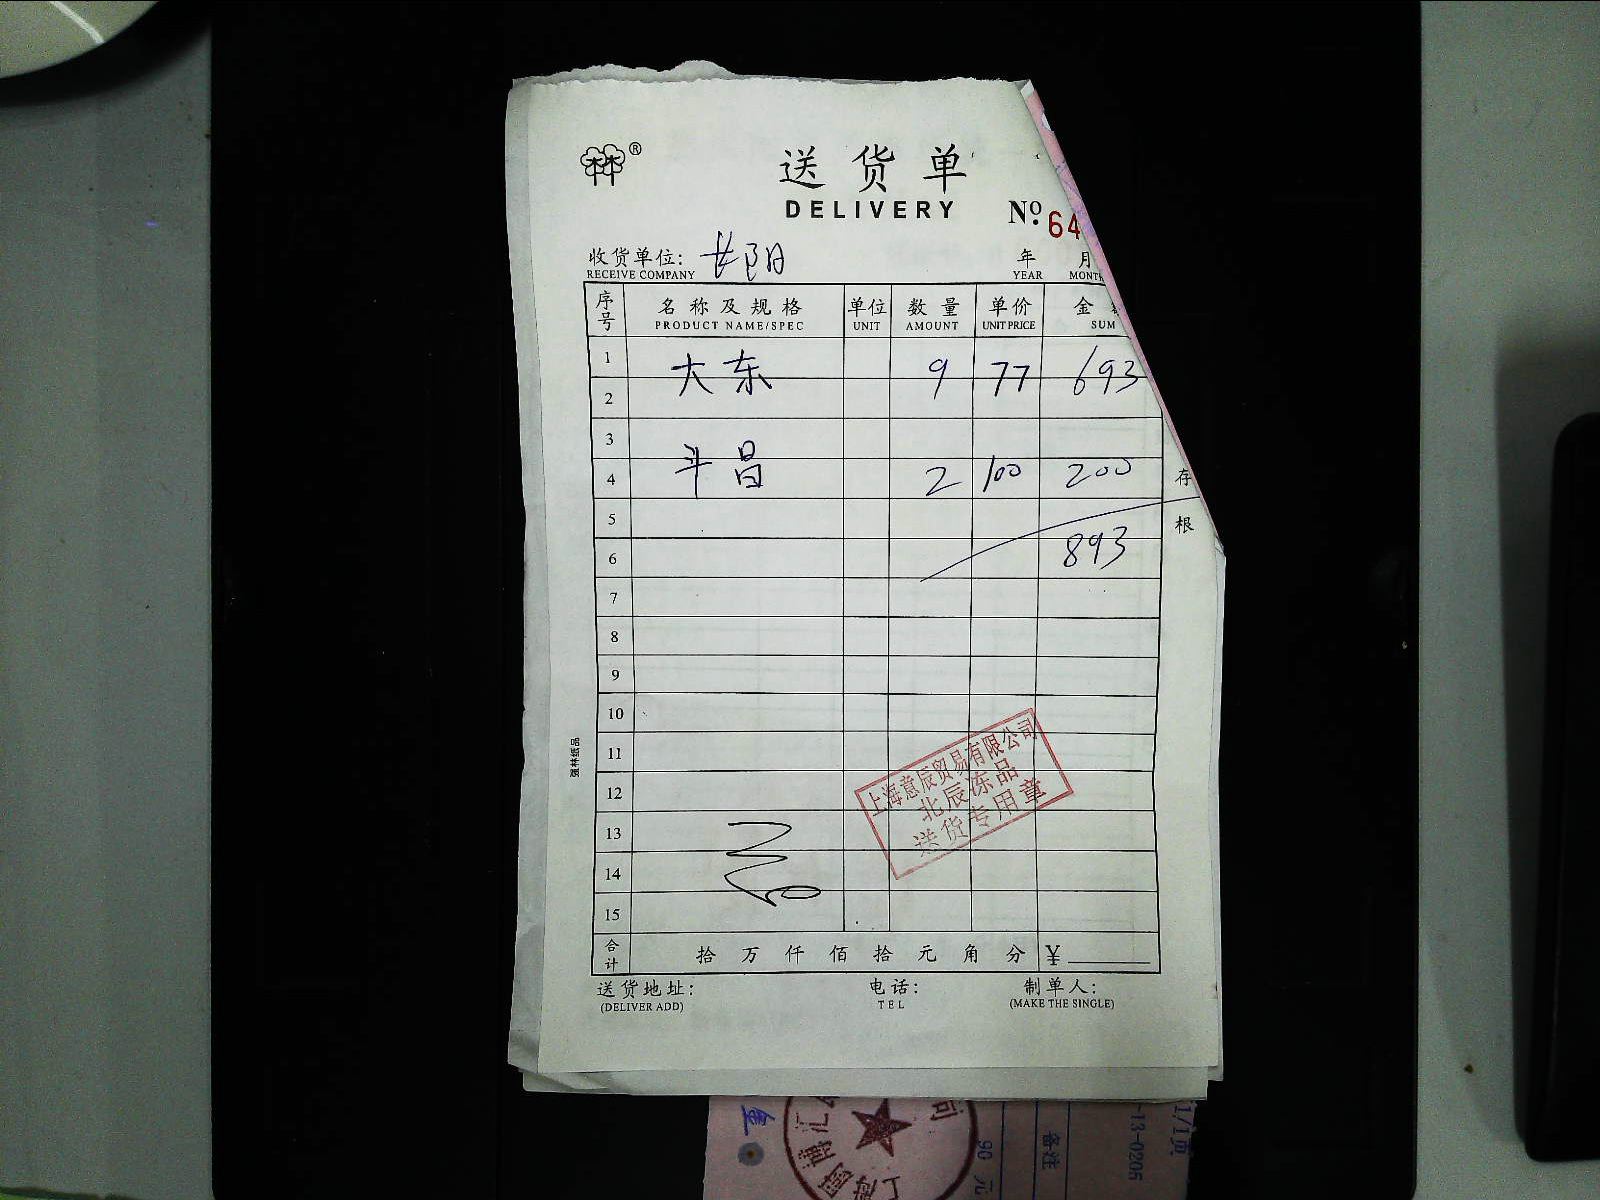 林®
送货单
DELIVERY
No. 64
收货单位: 长阳
RECEIVE COMPANY
年 月
YEAR MONTH
序号 名称及规格 单位 数量 单价 金
PRODUCT NAME/SPEC UNIT AMOUNT UNIT PRICE SUM
1 大东 9 77 693
2
3
4 斗昌 2 100 200
5
6 893
7
8
9
10
11
12
13
14
15
存根
强林纸品
上海意辰贸易有限公司
北辰冻品
送货专用章
合计 拾 万 仟 佰 拾 元 角 分 ¥
送货地址: 电话: 制单人:
(DELIVER ADD) TEL (MAKE THE SINGLE)
1/1页
-13-0205
备注
90 元